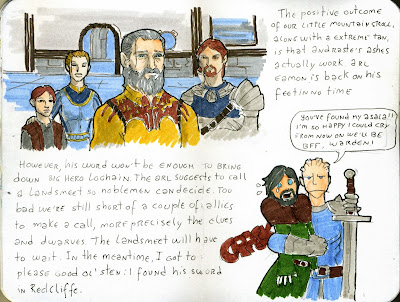 The positive outcome
of our little mountain stroll,
along with a extreme tan,
is that andraste's ashes
actually work. arl
eamon is back on his
feet in no time
You've found my asala!!
I'm so happy I could cry
from now on we'll be
BFF, warden!
However, his word won't be enough to bring
down big hero Loghain. The arl suggests to call
a Landsmeet so noblemen can decide. Too
bad we're still short of a couple of allies
to make a call, more precisely the elves
and dwarves. The Landsmeet will have
to wait. In the meantime, I got to
please good ol' sten: I found his sword
in Redcliffe.